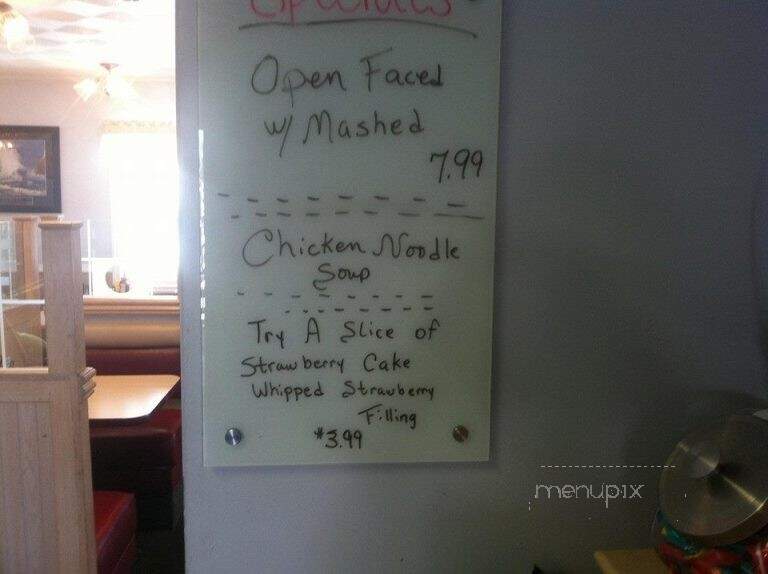 Specials
Open Faced
w/ Mashed
7.99
Chicken Noodle
Soup
Try A Slice of
Strawberry Cake
Whipped Strawberry
Filling
$3.99
menupix